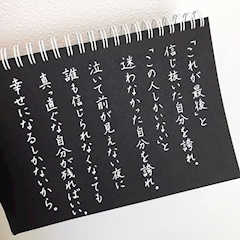 「これが最後」と
信じ抜いた自分を誇れ。
「この人しかいない」と
迷わなかった自分を誇れ。
泣いて前が見えない夜に
誰も信じられなくなっても
真っ直ぐな自分が残ればいい。
幸せになるしかないから。